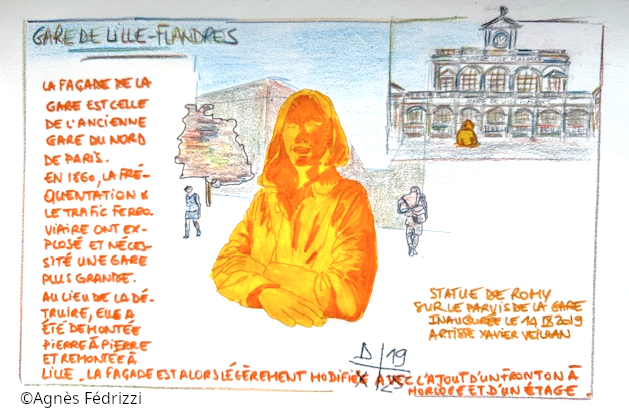 GARE DE LILLE-FLANDRES
LA FAÇADE DE LA
GARE EST CELLE
DE L'ANCIENNE
GARE DU NORD
DE PARIS.
EN 1860, LA FRÉ-
QUENTATION &
LE TRAFIC FERRO
VIAIRE ONT EX-
PLOSÉ ET NÉCES-
SITÉ UNE GARE
PLUS GRANDE.
AU LIEU DE LA DÉ-
TRUIRE, ELLE A
ÉTÉ DEMONTÉE
PIERRE À PIERRE
ET REMONTÉE À
LILLE. LA FAÇADE EST ALORS LÉGÈREMENT MODIFIÉE AVEC L'AJOUT D'UN FRONTON À
HORLOGE ET D'UN ÉTAGE.
GARE DE LILLE FLANDRES
STATUE DE ROMY
SUR LE PARVIS DE LA GARE
INAUGURÉE LE 14 IX 2019
ARTISTE XAVIER VEILHAN
D 19
X 25
©Agnès Fédrizzi